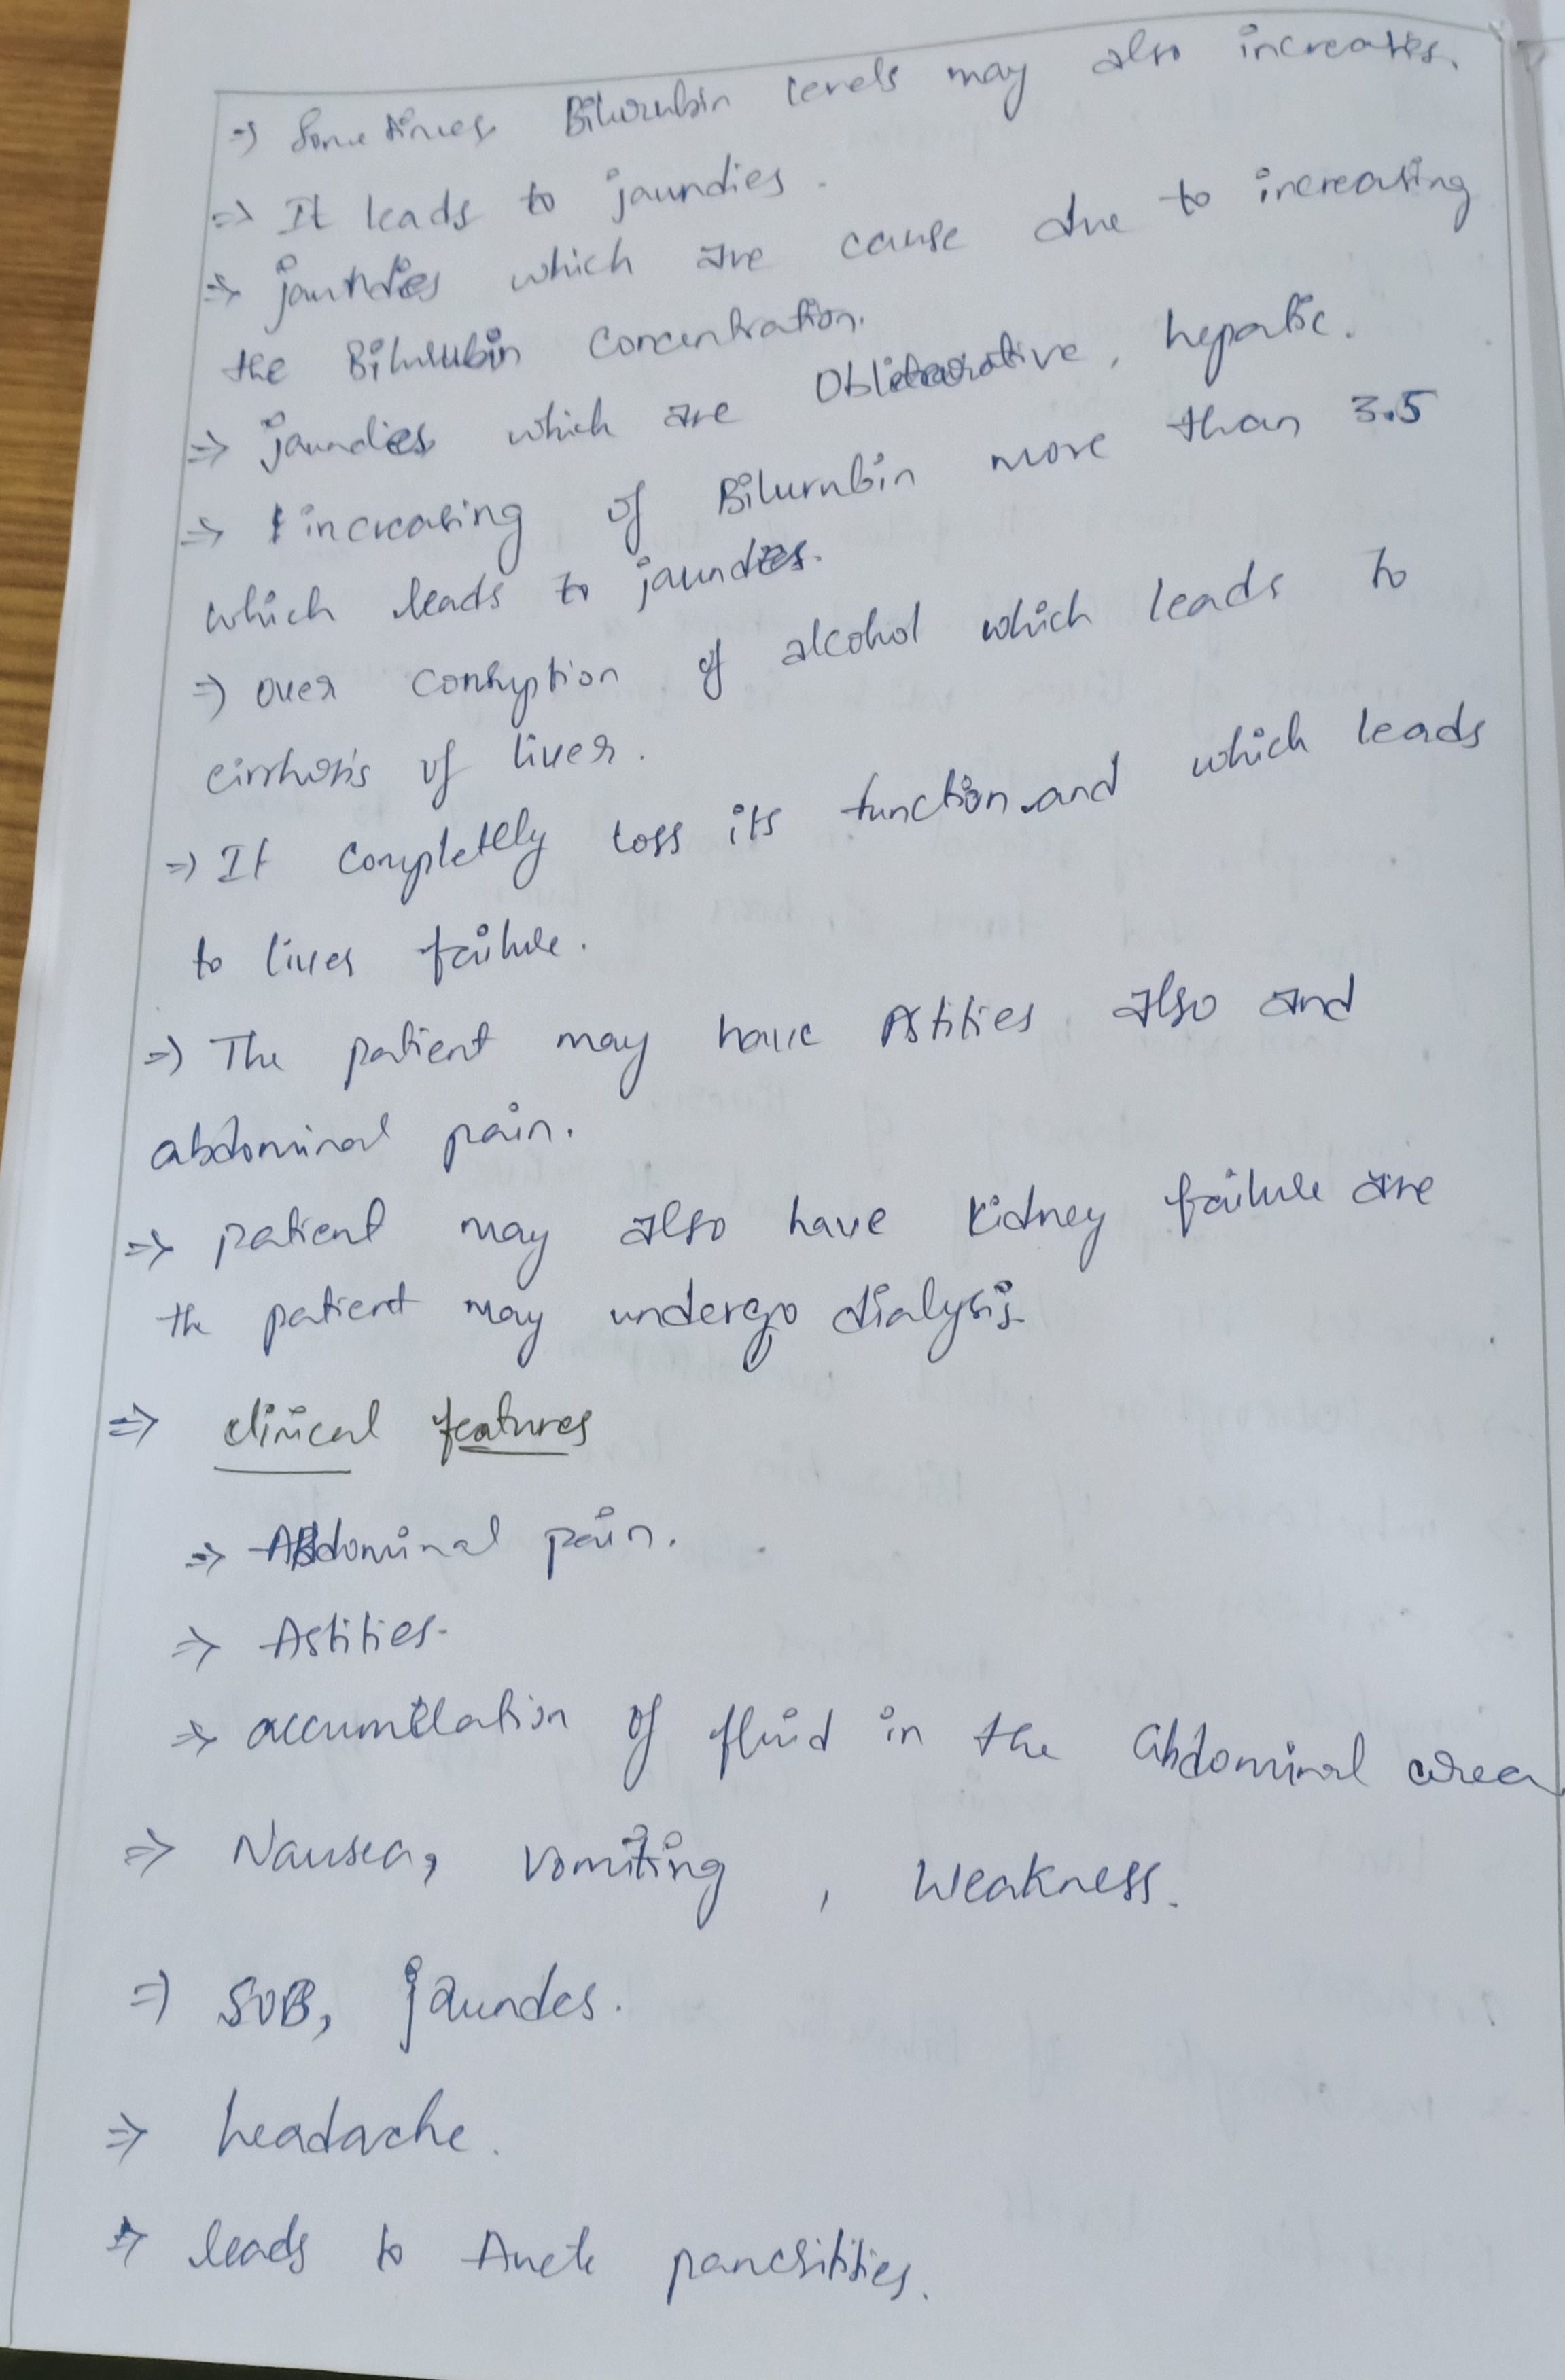 => Sometimes Bilurubin levels may also increases.
=> It leads to jaundies.
=> jaundies which are cause due to increasing
the Bilurubin concentration.
=> jaundies which are Obliterative, hepatic.
=> increasing of Bilurubin more than 3.5
which leads to jaundies.
=> over consuption of alcohol which leads to
cirrhosis of liver.
=> It completely loss its function and which leads
to liver failure.
=> The patient may have Astities also and
abdominal pain.
=> patient may also have kidney failure are
the patient may undergo dialysis.
=> clinical features
=> Abdominal pain.
=> Astities.
=> accumulation of fluid in the abdominal area
=> Nausea, vomiting, Weakness.
=> SOB, jaundes.
=> headache.
=> leads to Aucte pancritities.